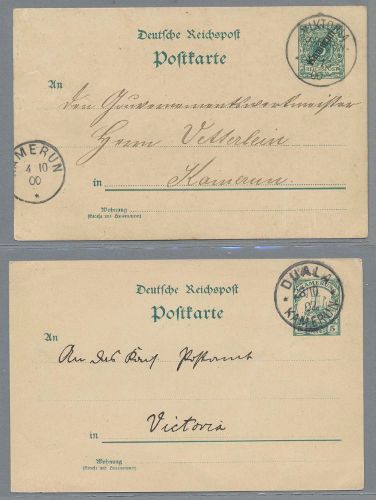 VIKTORIA
Kamerun
Deutsche Reichspost
Postkarte
An
den Gouvernementssekretär
Herrn Vetterlein
KAMERUN
4 10
00
*
in Kamerun.
Wohnung
(Straße und Hausnummer)
DUALA
KAMERUN
KAMERUN
5
Deutsche Reichspost
Postkarte
An
An das Kais Postamt
Victoria
in
Wohnung
(Straße und Hausnummer)